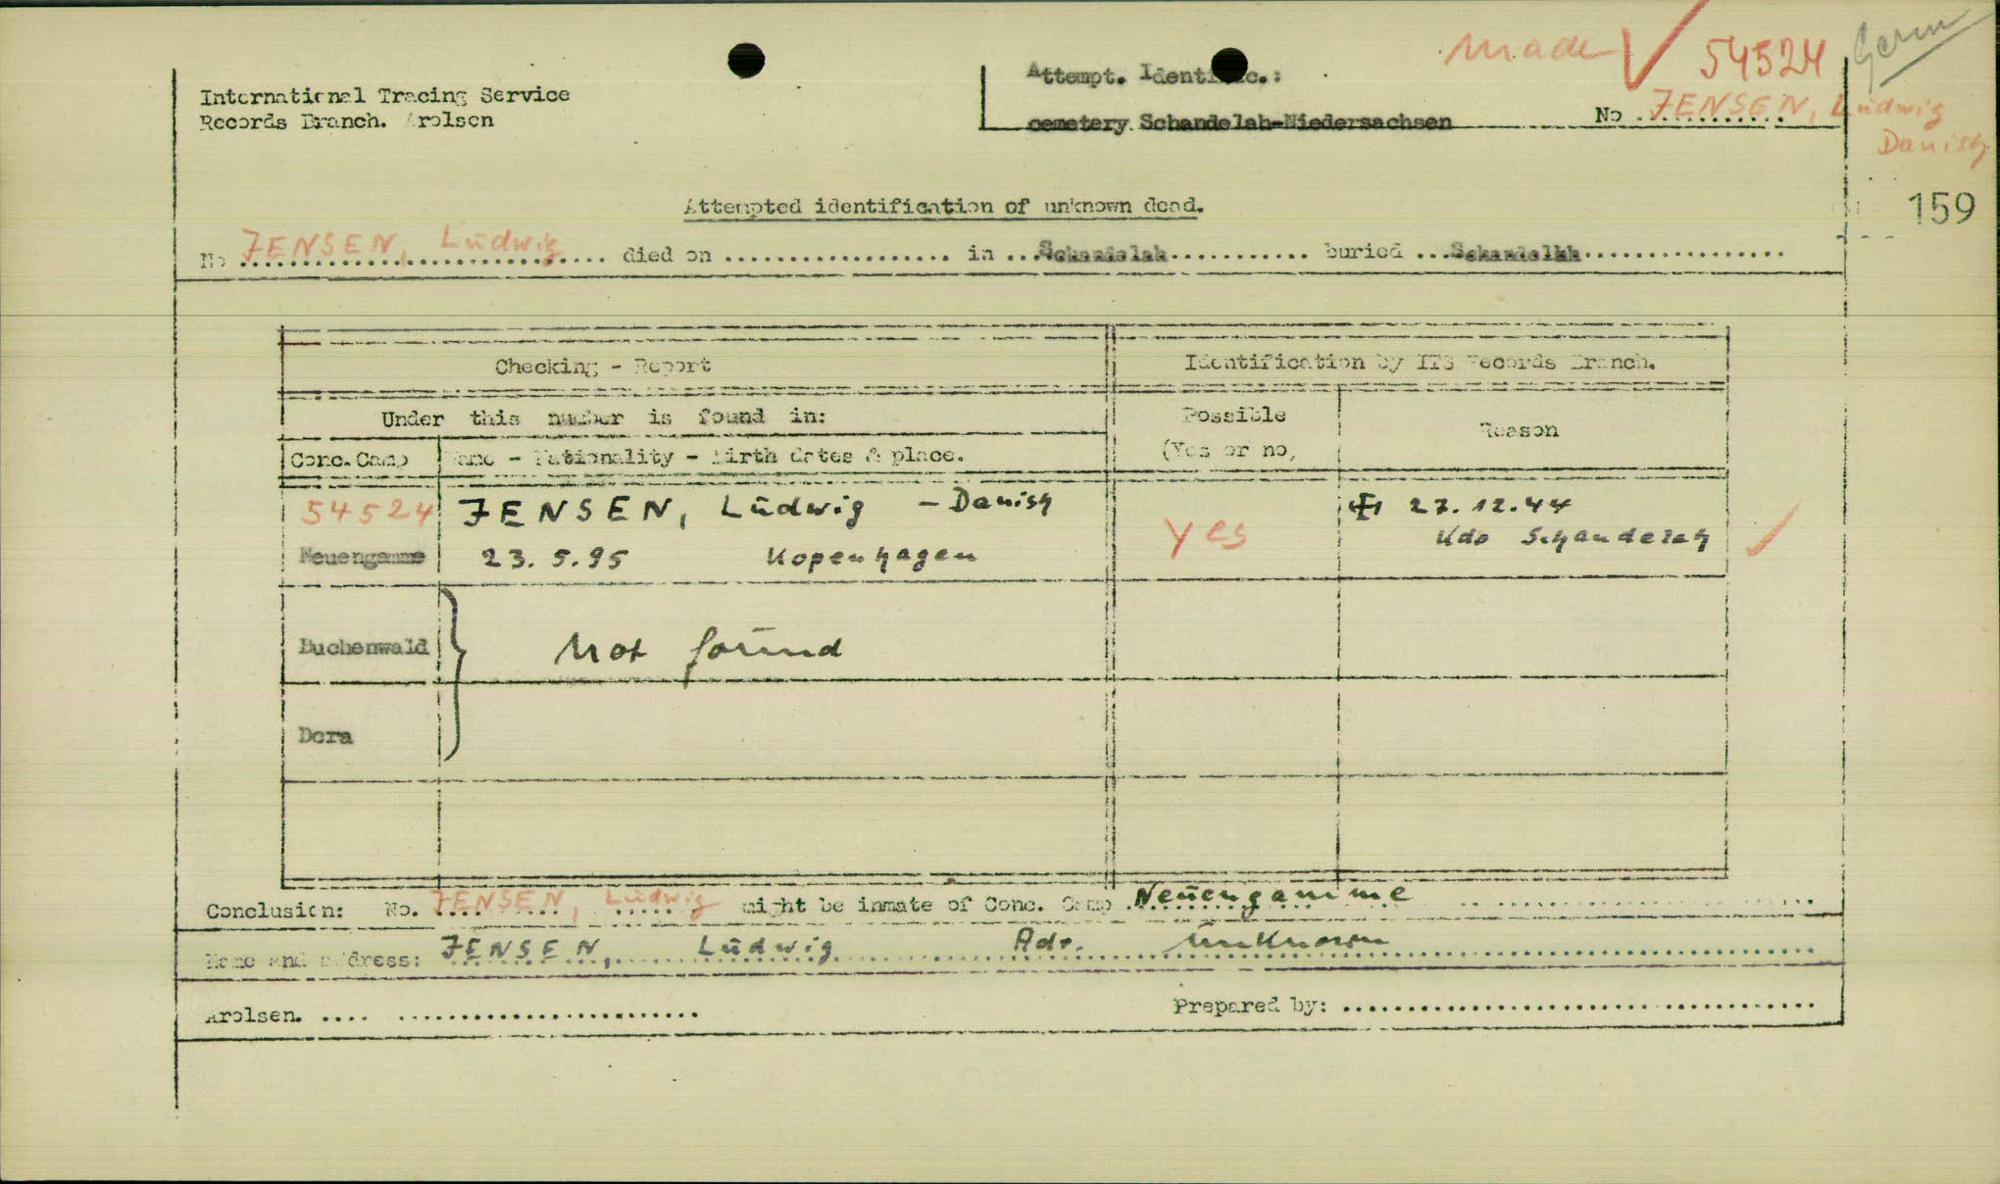 made ✓ 54524 Germ
International Tracing Service
Records Branch. Arolsen
Attempt. Identific.:
cemetery Schandelah-Niedersachsen
No JENSEN, Lūdwig
Danish
159
Attempted identification of unknown dead.
No JENSEN, Lūdwig died on .................. in ...Schandelah............ buried ...Schandelah.................
Checking - Report
Identification by ITS Records Branch.
Under this number is found in:
Possible
(Yes or no,
Reason
Conc.Camp
Name - Nationality - Birth dates & place.
54524 JENSEN, Lūdwig - Danish
Neuengamme 23. 5. 95 Kopenhagen
yes
27. 12. 44
Kdo Schandelah ✓
Buchenwald
Not foūnd
Dora
Conclusion: No. JENSEN, Lūdwig might be inmate of Conc. Camp Neūengamme
Name and address: JENSEN, Lūdwig Adr. ūnknown
Arolsen. .... ........................
Prepared by: ....................................